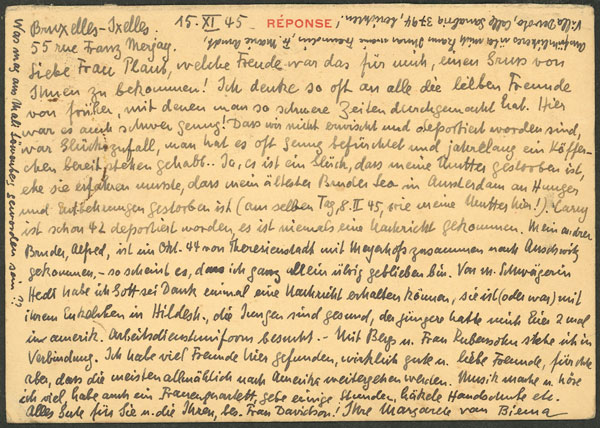 Bruxelles-Ixelles. 15.XI 45 RÉPONSE
55 rue Franz Merjay.
Liebe Frau Plaut, welche Freude war das für mich, einen Gruss von
Ihnen zu bekommen! Ich denke so oft an alle die lieben Freunde
von früher, mit denen man so schwere Zeiten durchgemacht hat. Hier
war es auch schwer genug! Dass wir nicht erwischt und deportiert worden sind,
war Glückszufall, man hat es oft genug befürchtet und jahrelang ein Köffer-
chen bereitstehen gehabt.. Ja, es ist ein Glück, dass meine Mutter gestorben ist,
ehe sie erfahren musste, dass mein ältester Bruder Leo in Amsterdam an Hunger
und Entbehrungen gestorben ist (am selben Tag, 8.II 45, wie meine Mutter hier!). Carry
ist schon 42 deportiert worden, es ist niemals eine Nachricht gekommen. Mein andrer
Bruder, Alfred, ist im Okt. 44 von Theresienstadt mit Meyerhofs zusammen nach Auschwitz
gekommen, - so scheint es, dass ich ganz allein übrig geblieben bin. Von m. Schwägerin
Hedt habe ich Gott sei Dank einmal eine Nachricht erhalten können, sie ist (oder war) mit
ihrem Enkelchen in Hildesh., die Jungen sind gesund, der jüngere hatte mich hier 2 mal
in amerik. Arbeitsdienstuniform besucht. - Mit Bergs u. Frau Rubensohn stehe ich in
Verbindung. Ich habe viel Freunde hier gefunden, wirklich gute u. liebe Freunde, fürchte
aber, dass die meisten allmählich nach Amerika weitergehen werden. Musik mache u. höre
ich viel, habe auch ein Frauenquartett, gebe einige Stunden, häkele Handschuhe etc.
Alles Gute für Sie u. die Ihren, bes. Frau Davidson! Ihre Margarete van Biema
Was mag aus Mab Löwenberg geworden sein??
Ausführlicheres
kann Ihnen meine Freundin, Fr. Marie Arndt,
Villa Devoto, Calle Sanabria 3794,